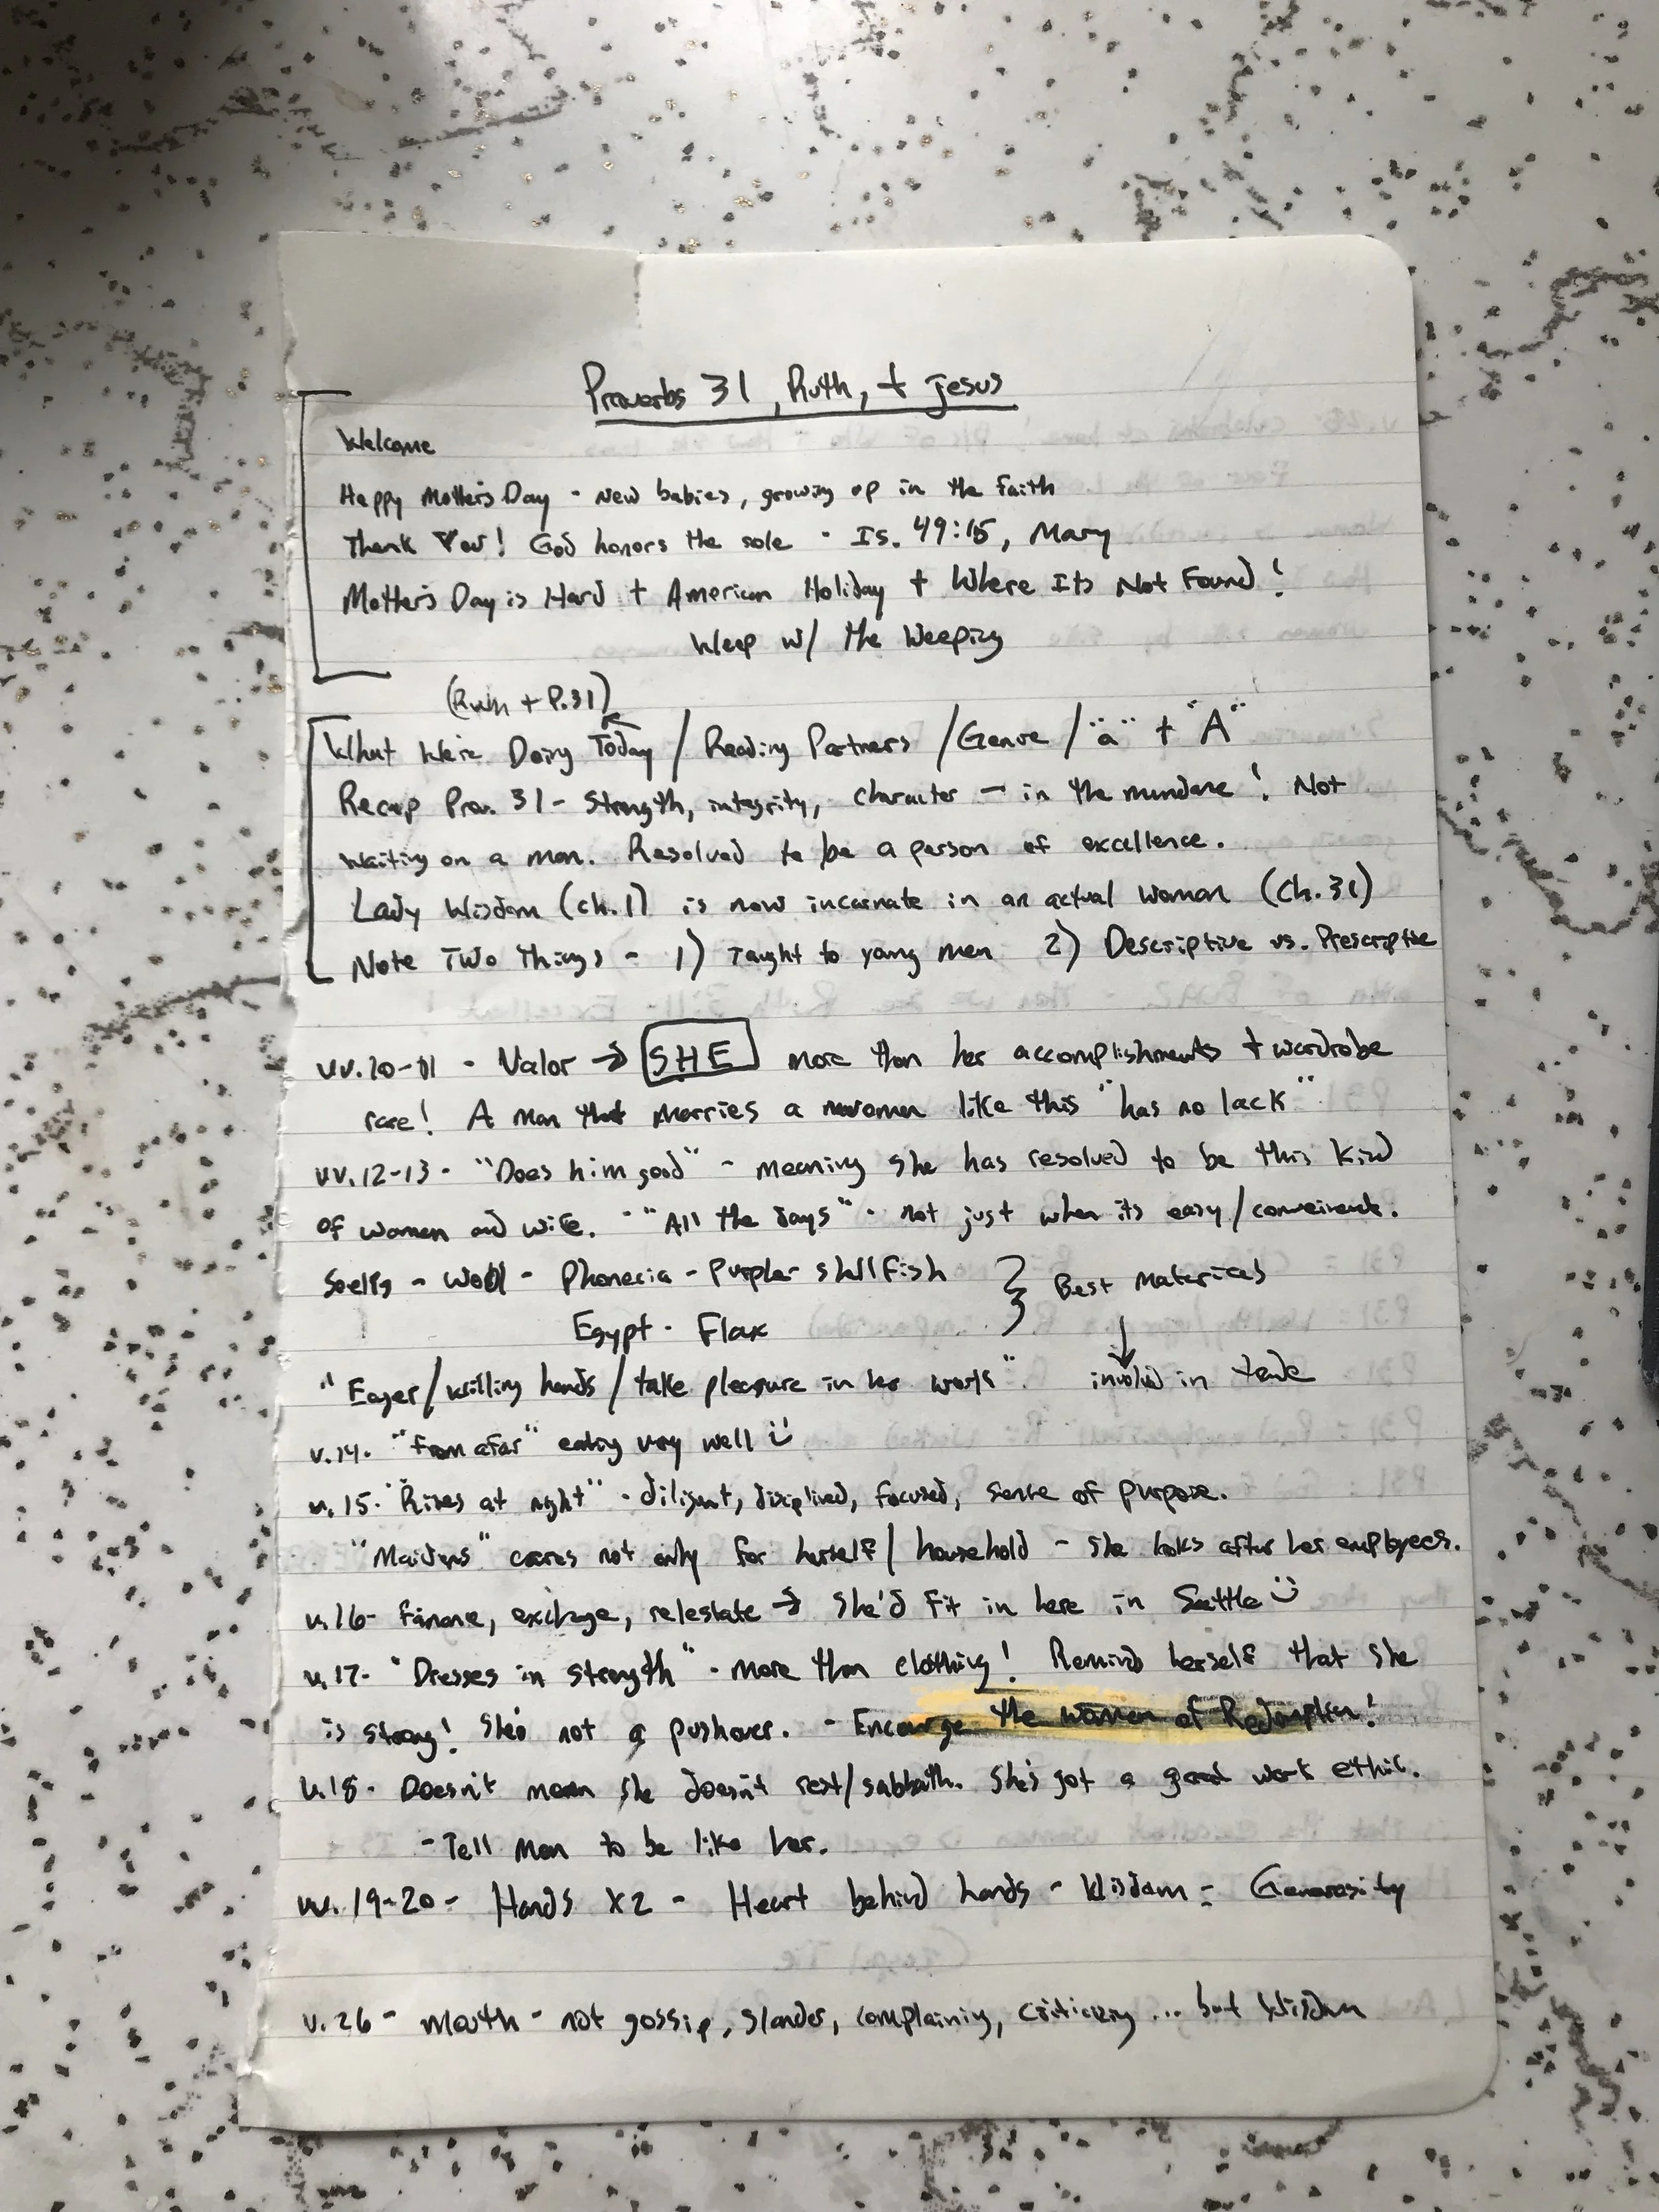 Proverbs 31, Ruth, + Jesus
Welcome
Happy Mother's Day - New babies, growing up in the faith
Thank You! God honors the sole - Is. 49:15, Mary
Mother's Day is Hard + American Holiday + Where Its Not Found!
Weep w/ the Weeping
(Ruth + P.31)
What We're Doing Today / Reading Partners / Genre / "a" + "A"
Recap Prov. 31 - Strength, integrity, character - in the mundane! Not
waiting on a man. Resolved to be a person of excellence.
Lady Wisdom (ch.1) is now incarnate in an actual woman (Ch.31)
Note Two Things - 1) Taught to young men 2) Descriptive vs. Prescriptive
vv.10-11 - Valor → SHE more than her accomplishments + wardrobe
rare! A man that marries a woman like this "has no lack"
vv.12-13 - "Does him good" - meaning she has resolved to be this kind
of women and wife. - "All the days" - not just when its easy/conveinent.
Seeks - Wool - Phonecia - Purple - shellfish } Best Materials
Egypt - Flax
"Eager/willing hands/take pleasure in her work". ↓ involved in trade
v.14. "from afar" eating very well :)
v.15. "Rises at night" - diligent, disciplined, focused, sense of purpose.
"Maidens" cares not only for herself/household - she looks after her employees.
v.16- finance, exchange, relestate → She'd fit in here in Seattle :)
v.17- "Dresses in strength" - more than clothing! Reminds herself that she
is strong! She's not a pushover. - Encourge the women of Redemption!
v.18- Doesn't mean she doesn't rest/sabbath. She's got a good work ethic.
- Tell Men to be like her.
vv.19-20- Hands x2 - Heart behind hands - Wisdom = Generosity
v.26- mouth - not gossip, slander, complaining, criticizing ... but Wisdom